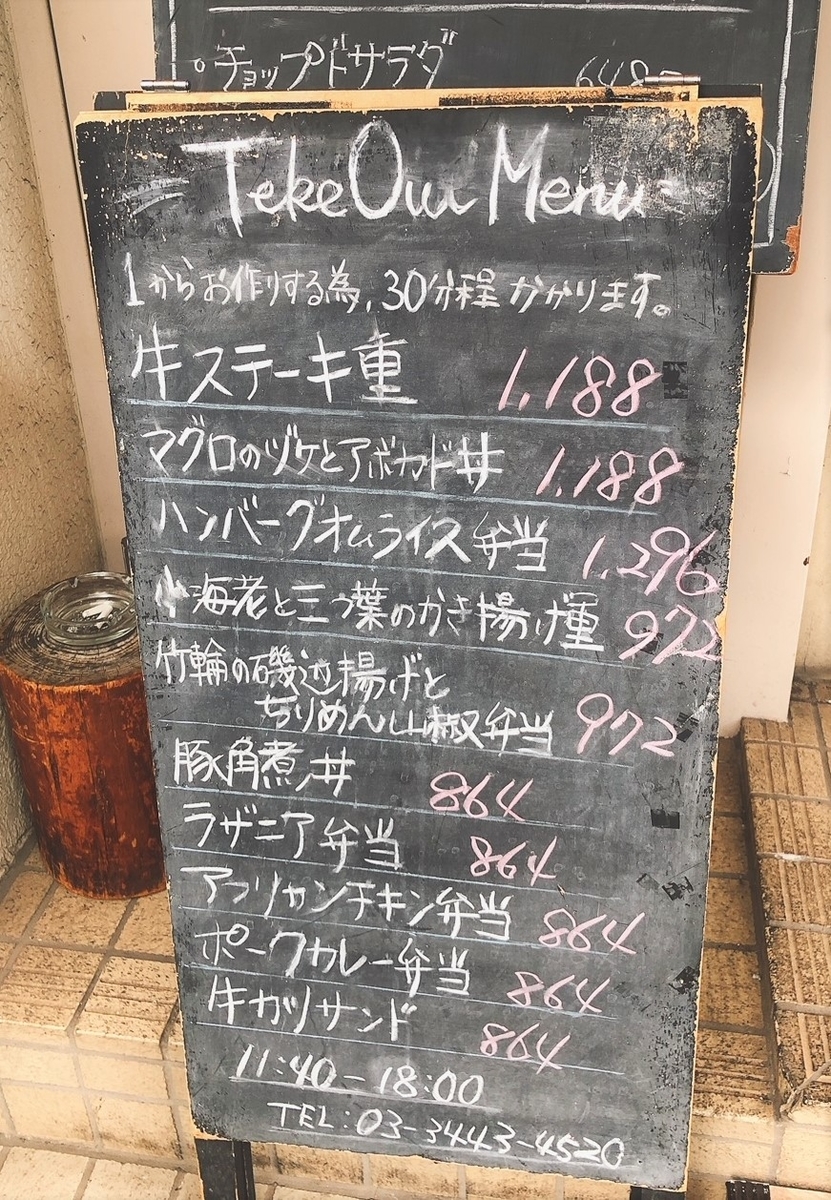 チョップドサラダ 648
Teke Out Menu
1からお作りする為、30分程かかります。
牛ステーキ重 1,188
マグロのヅケとアボカド丼 1,188
ハンバーグオムライス弁当 1,296
小海老と三つ葉のかき揚げ重 972
竹輪の磯辺揚げと
ちりめん山椒弁当 972
豚角煮丼 864
ラザニア弁当 864
アフリカンチキン弁当 864
ポークカレー弁当 864
牛カツサンド 864
11:40-18:00
TEL:03-3443-4520